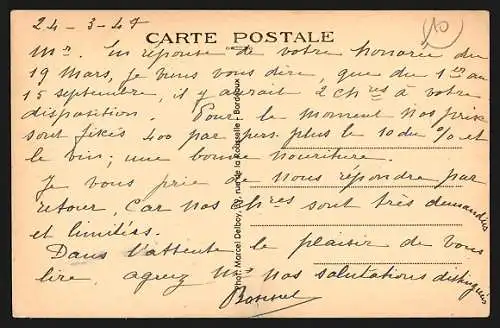 24-3-47
CARTE POSTALE
10
Mr. En réponse de votre honorée du
19 Mars, je viens vous dire, que du 1er au
15 septembre, il y aurait 2 chres à votre
disposition. Pour le moment nos prix
sont fixés 400 par pers. plus le 10 du % et
le vin; une bonne nourriture.
Je vous prie de nous répondre par
retour, car nos chres sont très demandées
et limitées.
Dans l'attente le plaisir de vous
lire, agréez Mr nos salutations distinguées
Phot. Marcel Delboy, rue de la Rousselle - Bordeaux